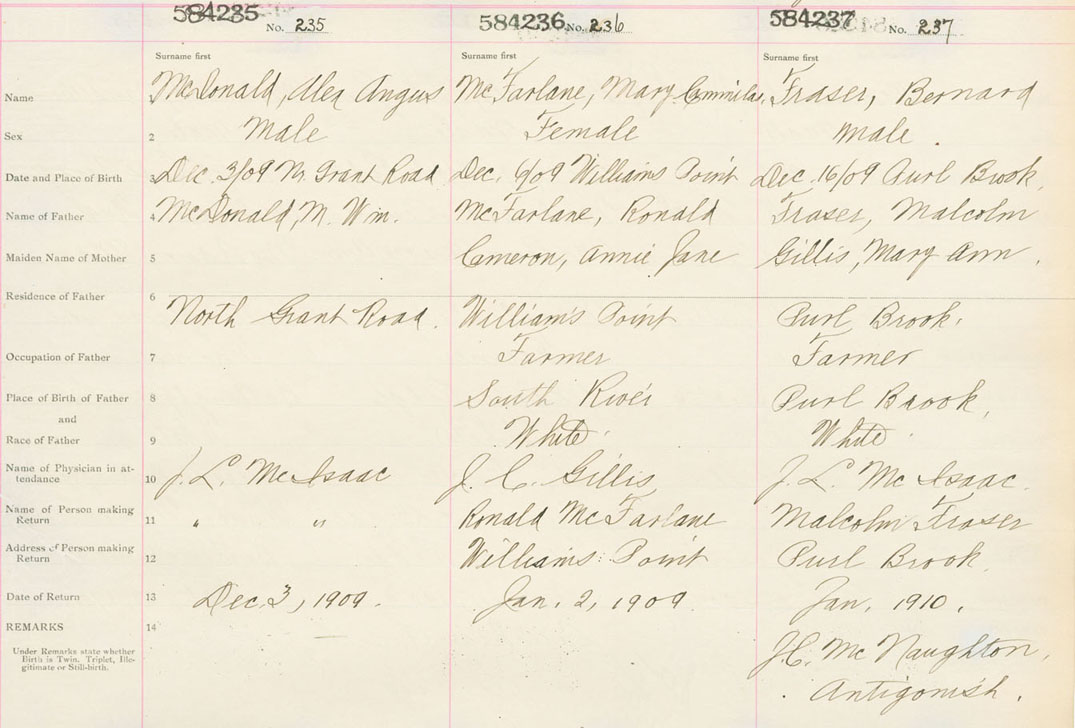 584235 No. 235
584236 No. 236
584237 No. 237
Surname first Surname first Surname first
Name 1 McDonald, Alex Angus McFarlane, Mary Fraser, Bernard
Sex 2 Male Female Male.
Date and Place of Birth 3 Dec. 3/09 N. Grant Road Dec. 6/09 Williams Point Dec. 16/09 Purl Brook.
Name of Father 4 McDonald, M. Wm. McFarlane, Ronald Fraser, Malcolm
Maiden Name of Mother 5 Cameron, Annie Jane Gillis, Mary Ann.
Residence of Father 6 North Grant Road. William's Point Purl Brook.
Occupation of Father 7 Farmer Farmer
Place of Birth of Father 8 South River Purl Brook,
and
Race of Father 9 White White
Name of Physician in at-
tendance 10 J. L. McIsaac J. C. Gillis J. L. McIsaac.
Name of Person making
Return 11 " " Ronald McFarlane Malcolm Fraser
Address of Person making
Return 12 Williams Point Purl Brook
Date of Return 13 Dec. 3, 1909. Jan. 2, 1909 Jan. 1910.
REMARKS 14
Under Remarks state whether
Birth is Twin, Triplet, Ille-
gitimate or Still-birth.
J.C. McNaughton,
Antigonish.